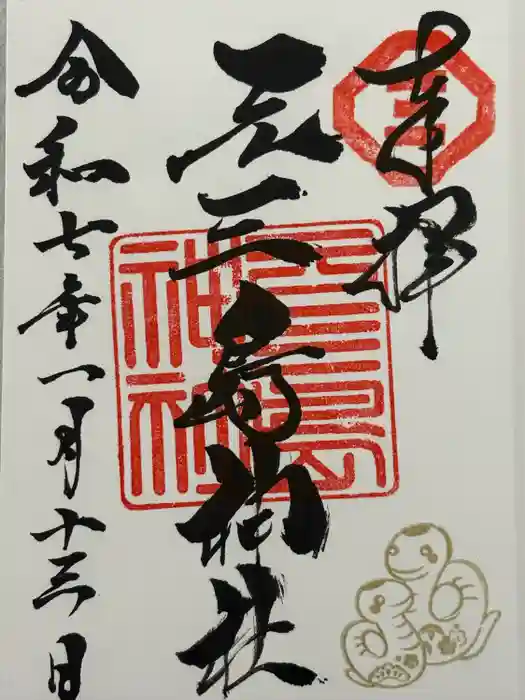 奉拝
元三島神社
令和七年一月十三日
三
三島
神社